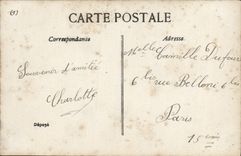 (81)
CARTE POSTALE
Correspondance
Adresse
Souvenir d'amitié
Charlotte
Melle Camille Dufour
6 bis rue Belloni 6 bis
Paris
15 ème
Déposé